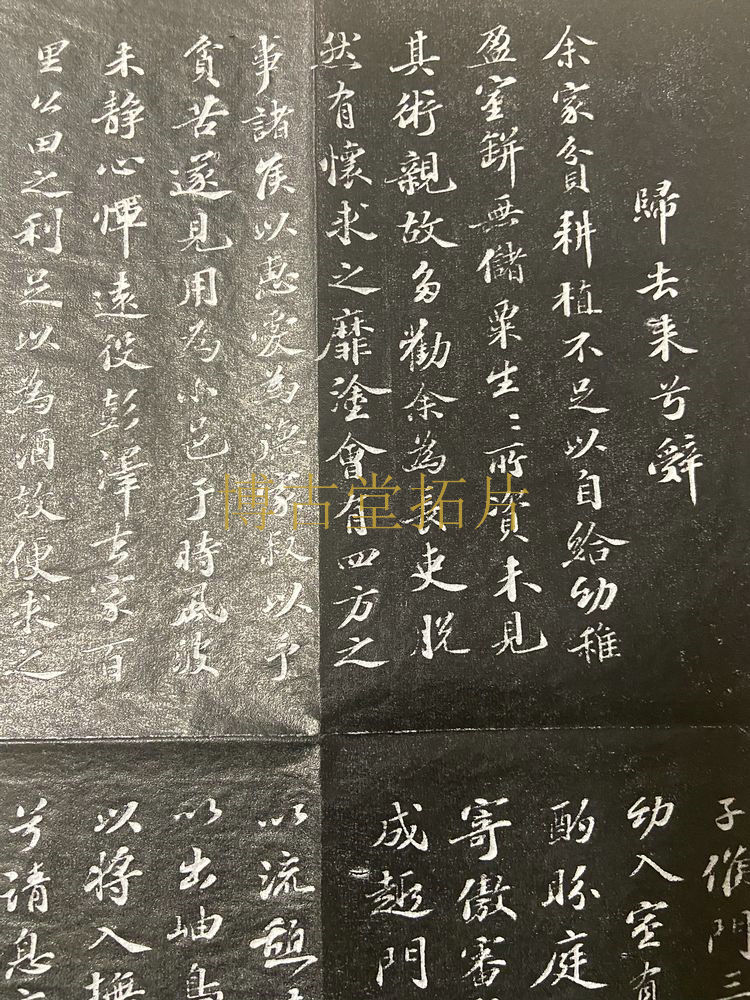 歸去来兮辭
余家貧耕植不足以自給幼稚
盈室缾無儲粟生〻所資未見
其術親故多勸余為長吏脱
然有懷求之靡塗會有四方之
事諸侯以惠愛為德家叔以予
貧苦遂見用為小邑于時風波
未靜心憚遠役彭澤去家百
里公田之利足以為酒故便求之
子候門三
幼入室有
酌眄庭
寄傲審
成趣門
以流憩
以出岫鳥
以将入撫
兮請息
博古堂拓片